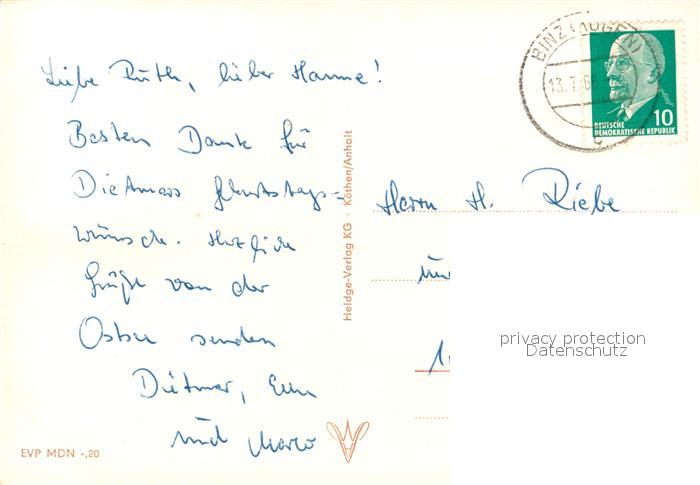 Liebe Ruth, lieber Hanne!
Besten Dank für
Dietmars Geburtstags-
wünsche. Herzliche
Grüße von der
Ostsee senden
Dietmar, Ellen
und Marco
EVP MDN -,20
Heldge-Verlag KG · Köthen/Anhalt
BINZ (RÜGEN)
13.7.66
c
10
DEUTSCHE
DEMOKRATISCHE REPUBLIK
Herrn H. Riebe
privacy protection
Datenschutz